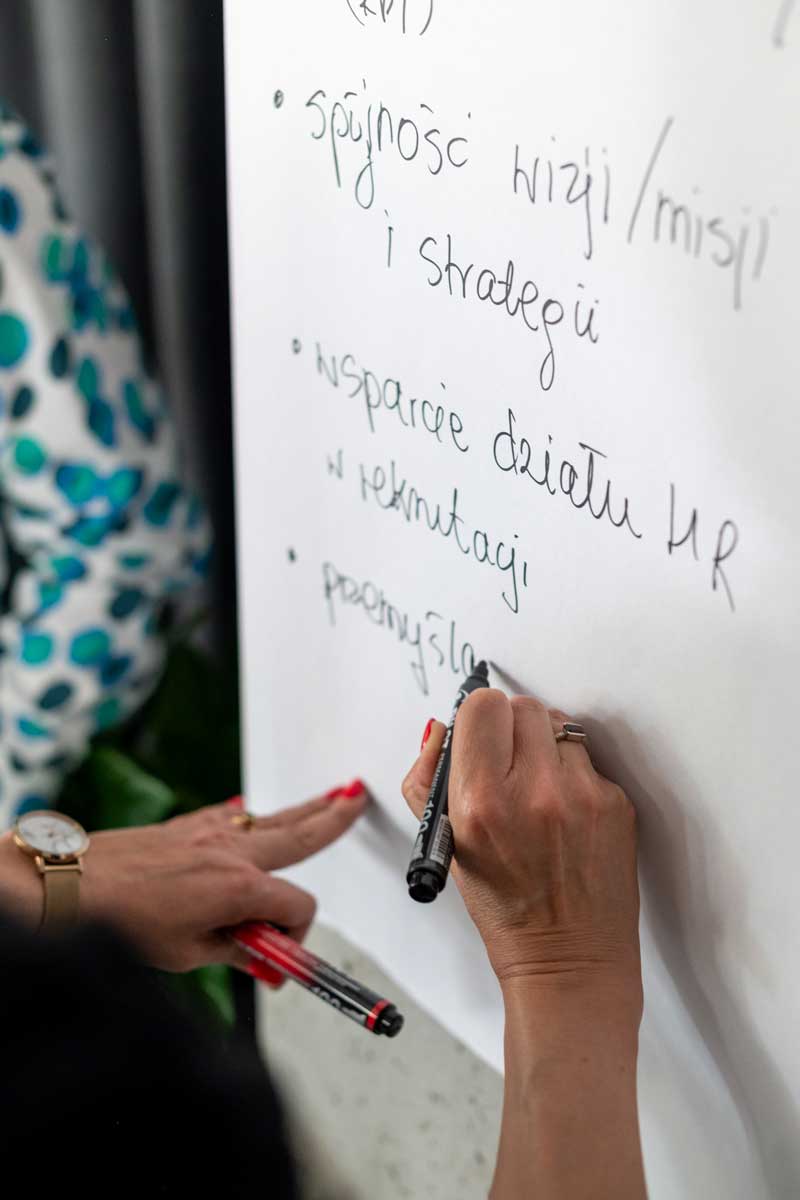 (KPI)
• spójność wizji/misji
i strategii
• wsparcie działu HR
w rekrutacji
• przemyśla
400